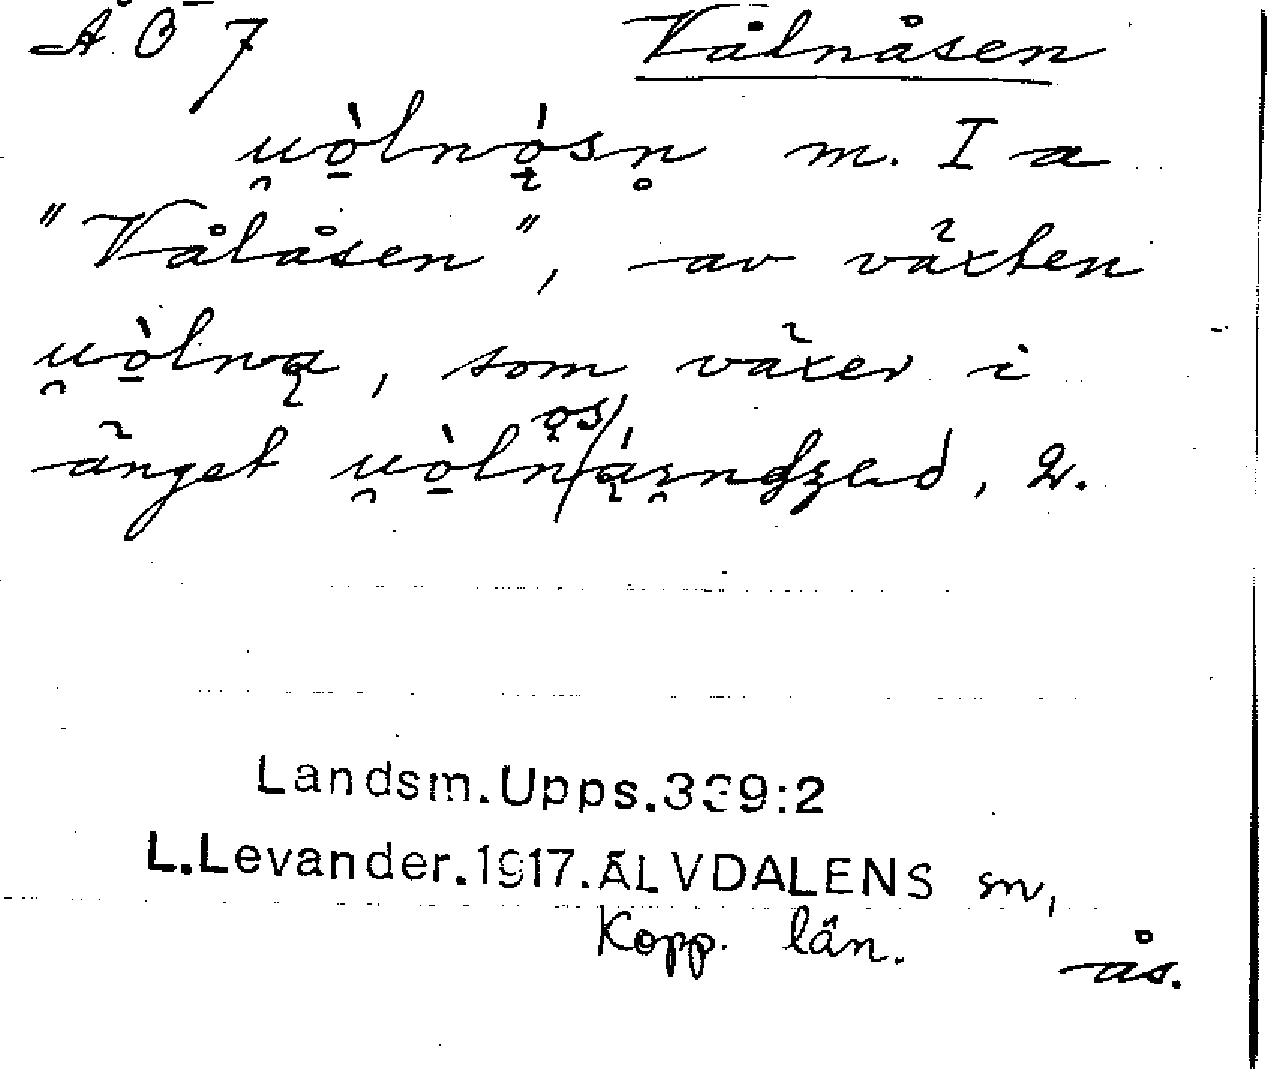 Å Ö 7 Vålnåsen
u̯ò̱lnǫ́sn̥ m. I a
"Vålåsen", av växten
u̯ò̱lną, som växer i
änget u̯ò̱ln, 2.
Landsm.Upps.339:2
L.Levander.1917.ÄLVDALENS sn,
Kopp. län.
ås.